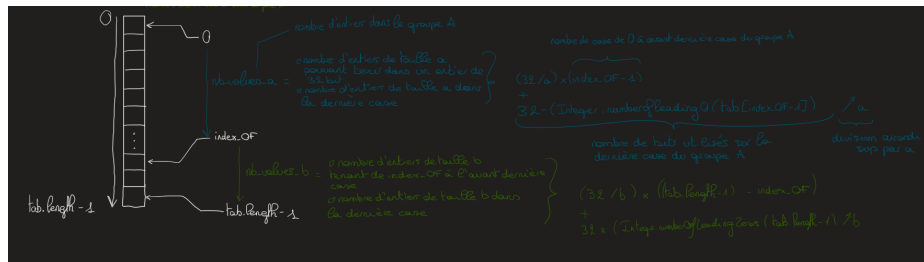 0
0
nombre d'entier dans le groupe A
nb_values_a =
nombre d'entiers de taille a
pouvant tenir dans un entier de
32 bit
nombre d'entier de taille a dans
la dernière case
nombre de case de 0 à avant dernière case du groupe A
(32/a) * (index_OF-1)
+
32-(Integer.numberofleading0(tab[index_OF-1])
/ a
nombre de bits utilisés sur la
dernière case du groupe A
division arrondi
sup par a
index_OF
nb_values_b =
nombre d'entiers de taille b
tenant de index_OF à l'avant dernière
case
nombre d'entier de taille b dans
la dernière case
(32/b) * ((tab.length-1) - index_OF)
+
32 * (Integer.numberOfleadingZeros(tab.length-1) / b
tab.length-1
tab.length-1